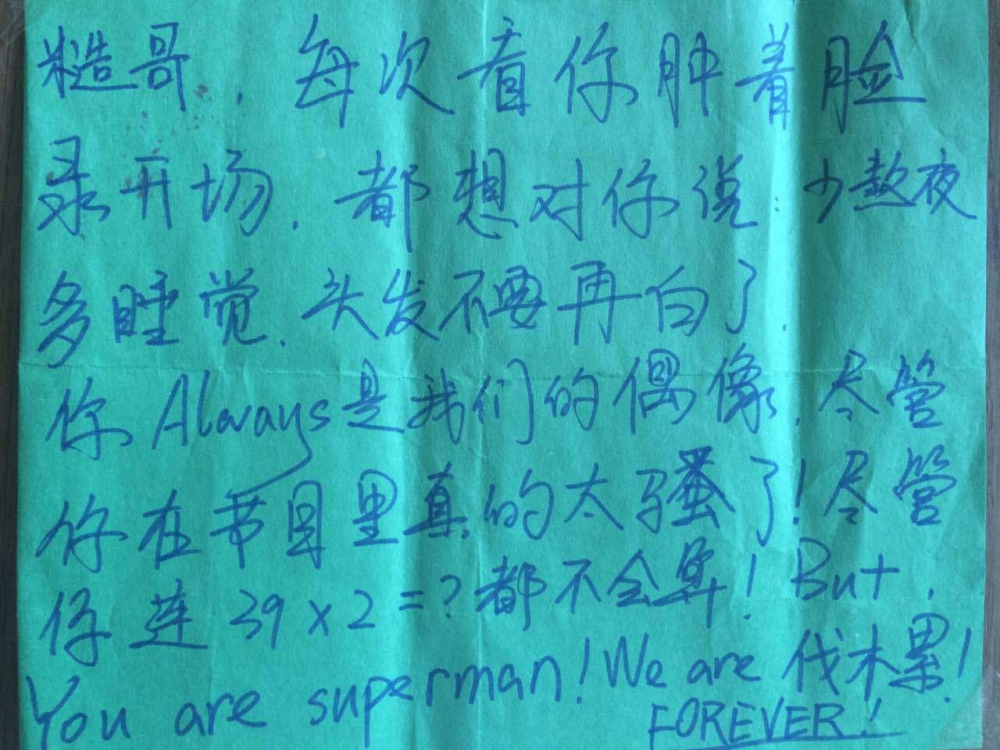 糙哥，每次看你肿着脸
录开场，都想对你说：少熬夜
多睡觉，头发不要再白了．
你 Always是我们的偶像，尽管
你在节目里真的太骚了！尽管
你连 39×2=？都不会算！But，
You are superman！We are 伐木累！
FOREVER！